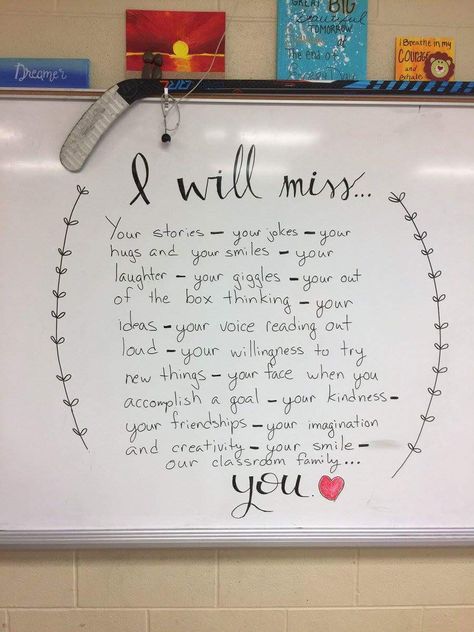 Dreamer
GREAT BIG
Beautiful
TOMORROW
at
the end of
Every Day
I Breathe in my
COURAGE
and
exhale
I will miss...
Your stories – your jokes – your
hugs and your smiles – your
laughter – your giggles – your out
of the box thinking – your
ideas – your voice reading out
loud – your willingness to try
new things – your face when you
accomplish a goal – your kindness –
your friendships – your imagination
and creativity – your smile –
our classroom family...
you.